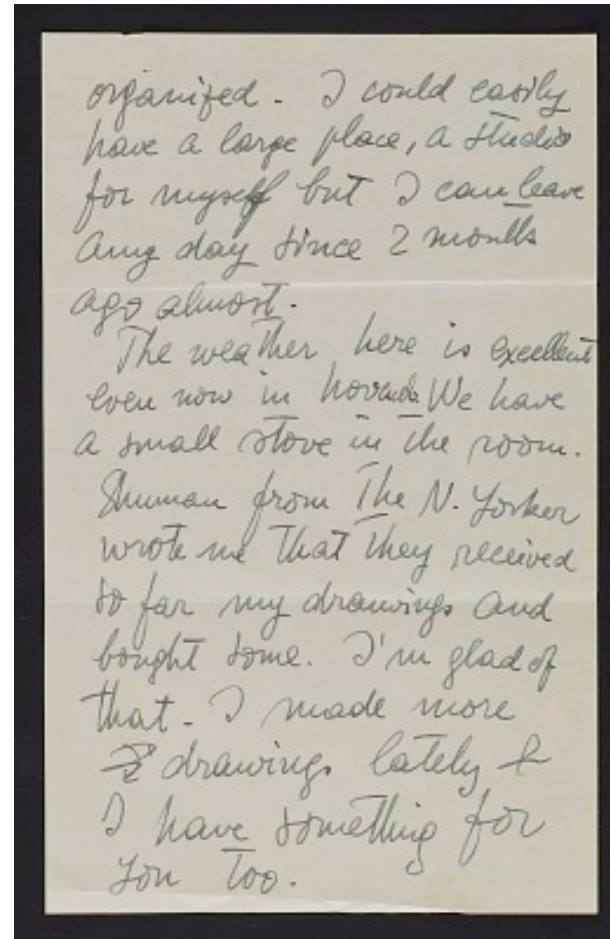 organized. I could easily
have a large place, a studio
for myself but I can leave
any day since 2 months
ago almost.
The weather here is excellent
even now in We have
a small stove in the room.
Shuman from The N. Yorker
wrote me that they received
so far my drawings and
bought some. I'm glad of
that. I made more
drawings lately &
I have something for
you too.